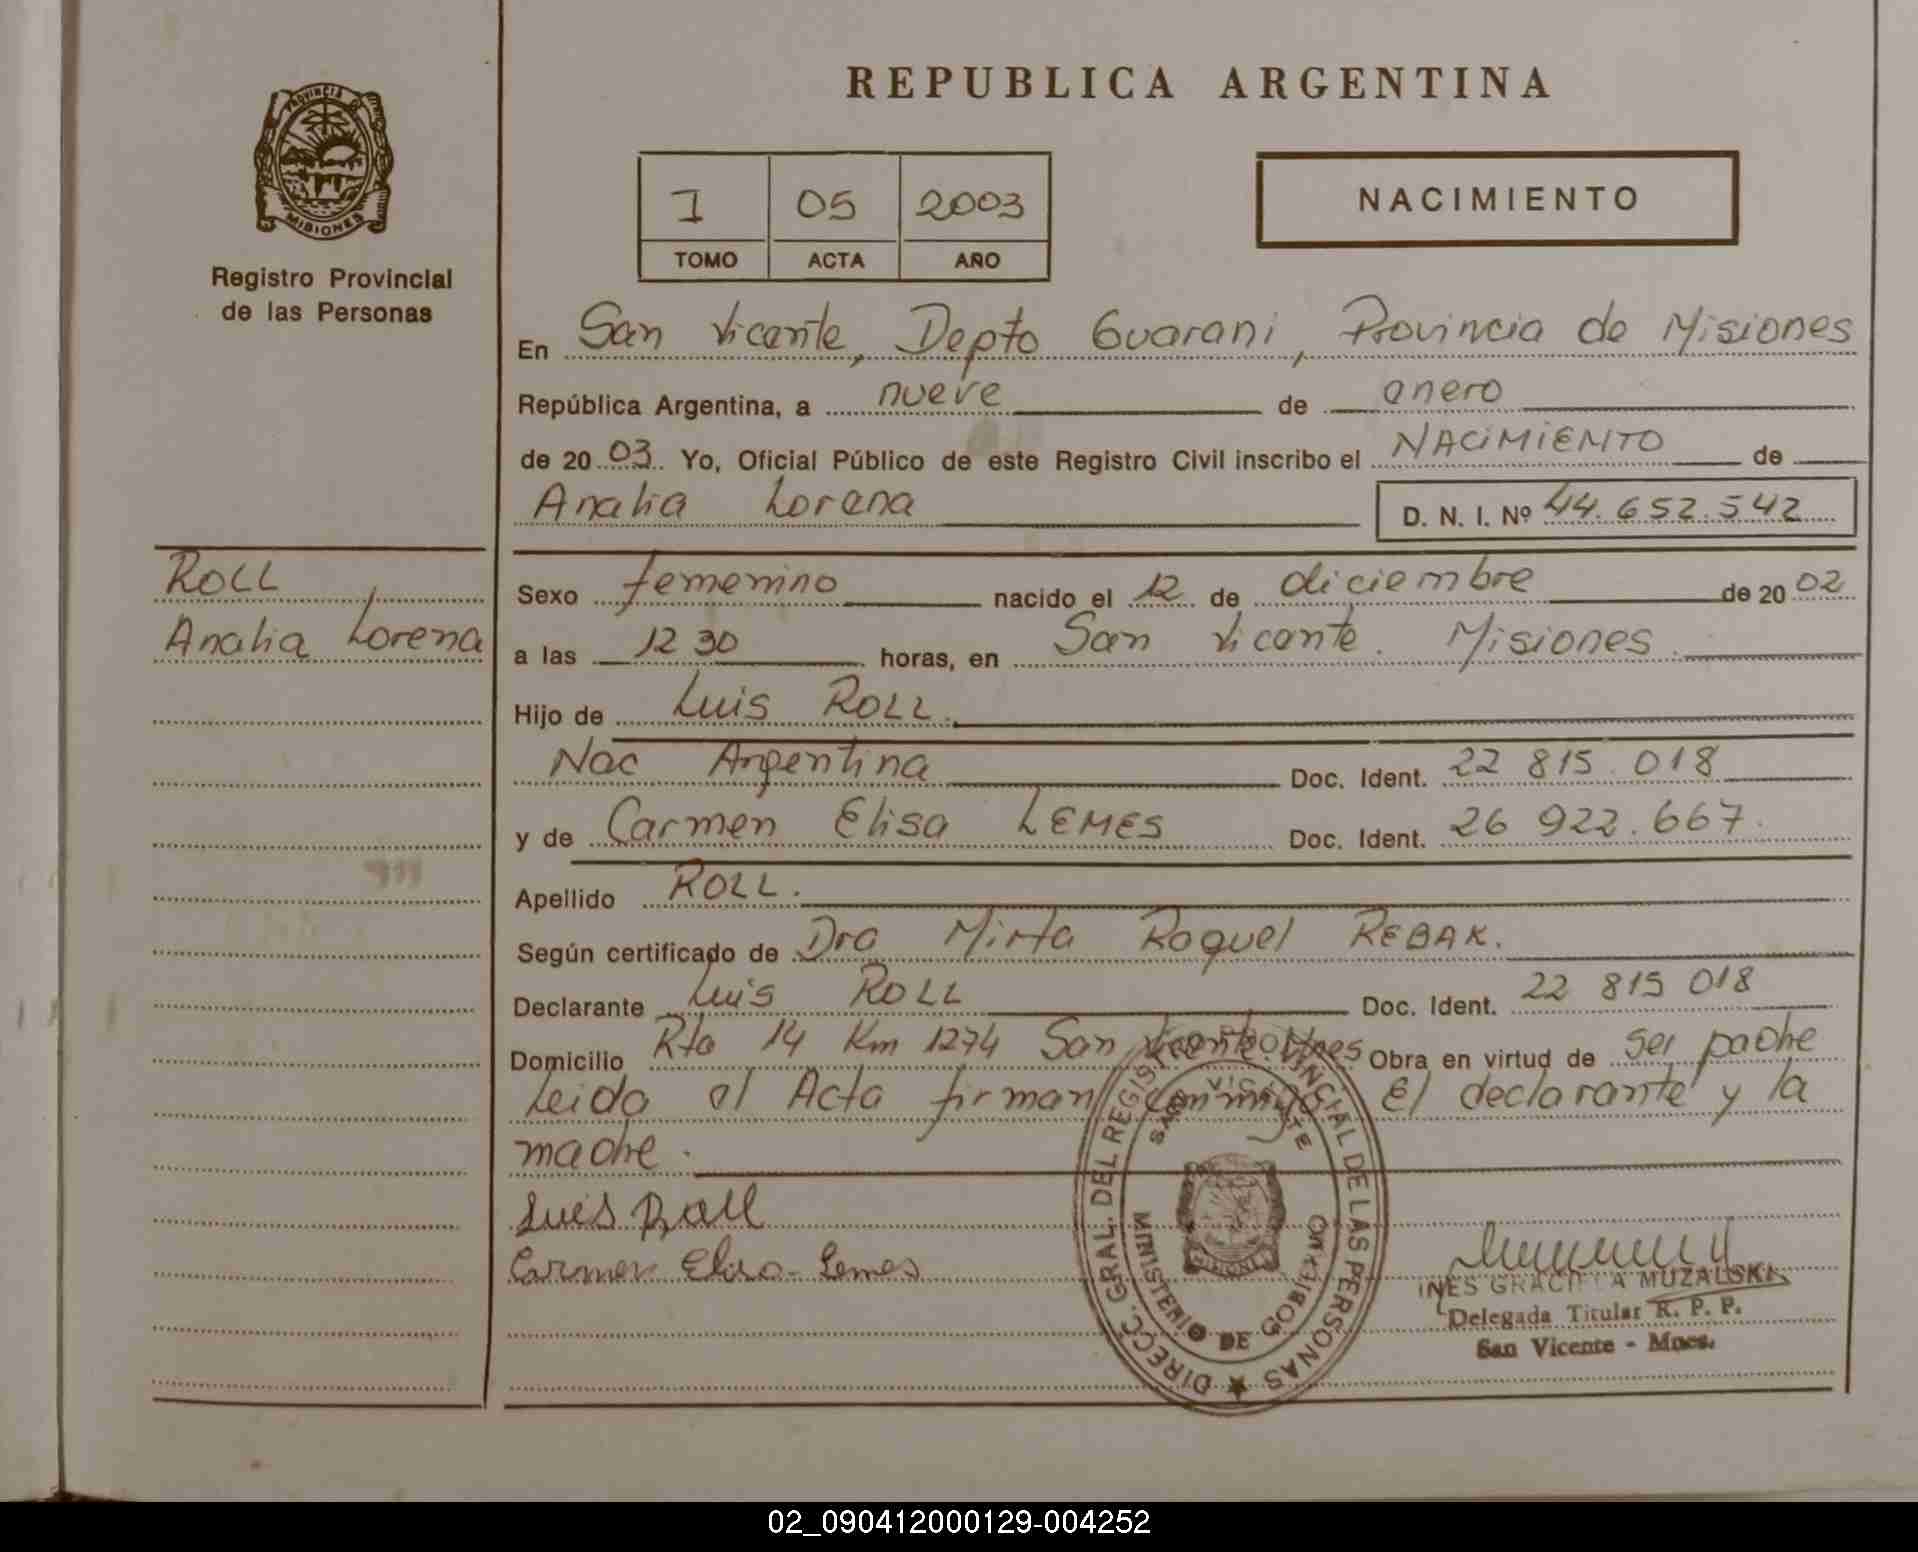 REPUBLICA ARGENTINA
PROVINCIA DE
MISIONES
Registro Provincial
de las Personas
I 05 2003
TOMO ACTA AÑO
NACIMIENTO
En San Vicente, Depto Guarani, Provincia de Misiones
República Argentina, a nueve de enero
de 2003. Yo, Oficial Público de este Registro Civil inscribo el NACIMIENTO de
Analia Lorena D. N. I. Nº 44.652.542
ROLL
Analia Lorena
Sexo femenino nacido el 12 de diciembre de 2002
a las 12 30 horas, en San Vicente. Misiones.
Hijo de Luis ROLL.
Nac Argentina Doc. Ident. 22 815.018
y de Carmen Elisa LEMES Doc. Ident. 26 922.667.
Apellido ROLL.
Según certificado de Dra Mirta Raquel REBAK.
Declarante Luis ROLL Doc. Ident. 22 815 018
Domicilio Rta 14 Km 1274 San Vicente. Mnes Obra en virtud de ser padre
Leida el Acta firman conmigo El declarante y la
madre.
Luis Roll
Carmen Elisa Lemes
DIRECC. GRAL. DEL REGISTRO PROVINCIAL DE LAS PERSONAS
SAN VICENTE
MISIONES
MINISTERIO DE GOBIERNO
INES GRACIELA MUZALSKI
Delegada Titular R. P. P.
San Vicente - Mnes.
02_090412000129-004252